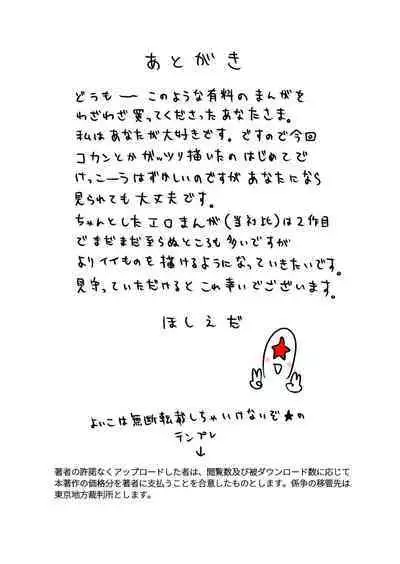 あとがき
どうもー このような有料のまんがを
わざわざ買ってくださったあなたさま。
私はあなたが大好きです。ですので今回
コカンとかガッツリ描いたの はじめてで
けっこーうはずかしいのですが あなたになら
見られても大丈夫です。
ちゃんとしたエロまんが(当社比)は2作目
でまだまだ至らぬところも多いですが
よりイイものを描けるようになっていきたいです。
見守っていただけると これ幸いでございます。
ほしえだ
よいこは無断転載しちゃいけないぞ★の
テンプレ
↓
著者の許諾なくアップロードした者は、閲覧数及び被ダウンロード数に応じて
本著作の価格分を著者に支払うことを合意したものとします。係争の移管先は
東京地方裁判所とします。